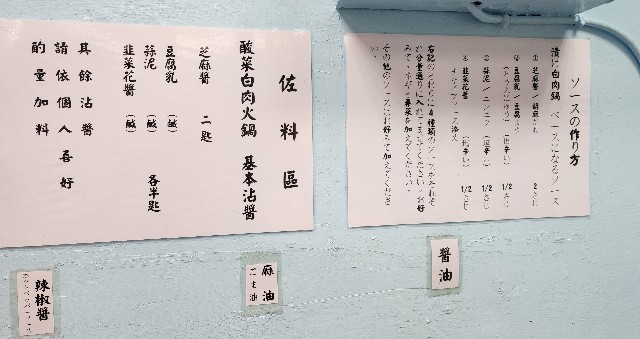 佐料區
酸菜白肉火鍋 基本沾醬
芝麻醬 二匙
豆腐乳(鹹)
蒜泥(鹹) 各半匙
韮菜花醬(鹹)
其餘沾醬
請依個人喜好
酌量加料
ソースの作り方
漬け白肉鍋 ベースになるソース
① 芝麻醬/胡麻だれ 2さじ
② 豆腐乳/豆腐よう
1/2さじ
③ 蒜泥/ニンニク 1/2さじ
④ 韮菜花醬
1/2さじ
その他のソースはお好みで加えてくださ
い。
辣椒醬
麻油
ごま油
醬油